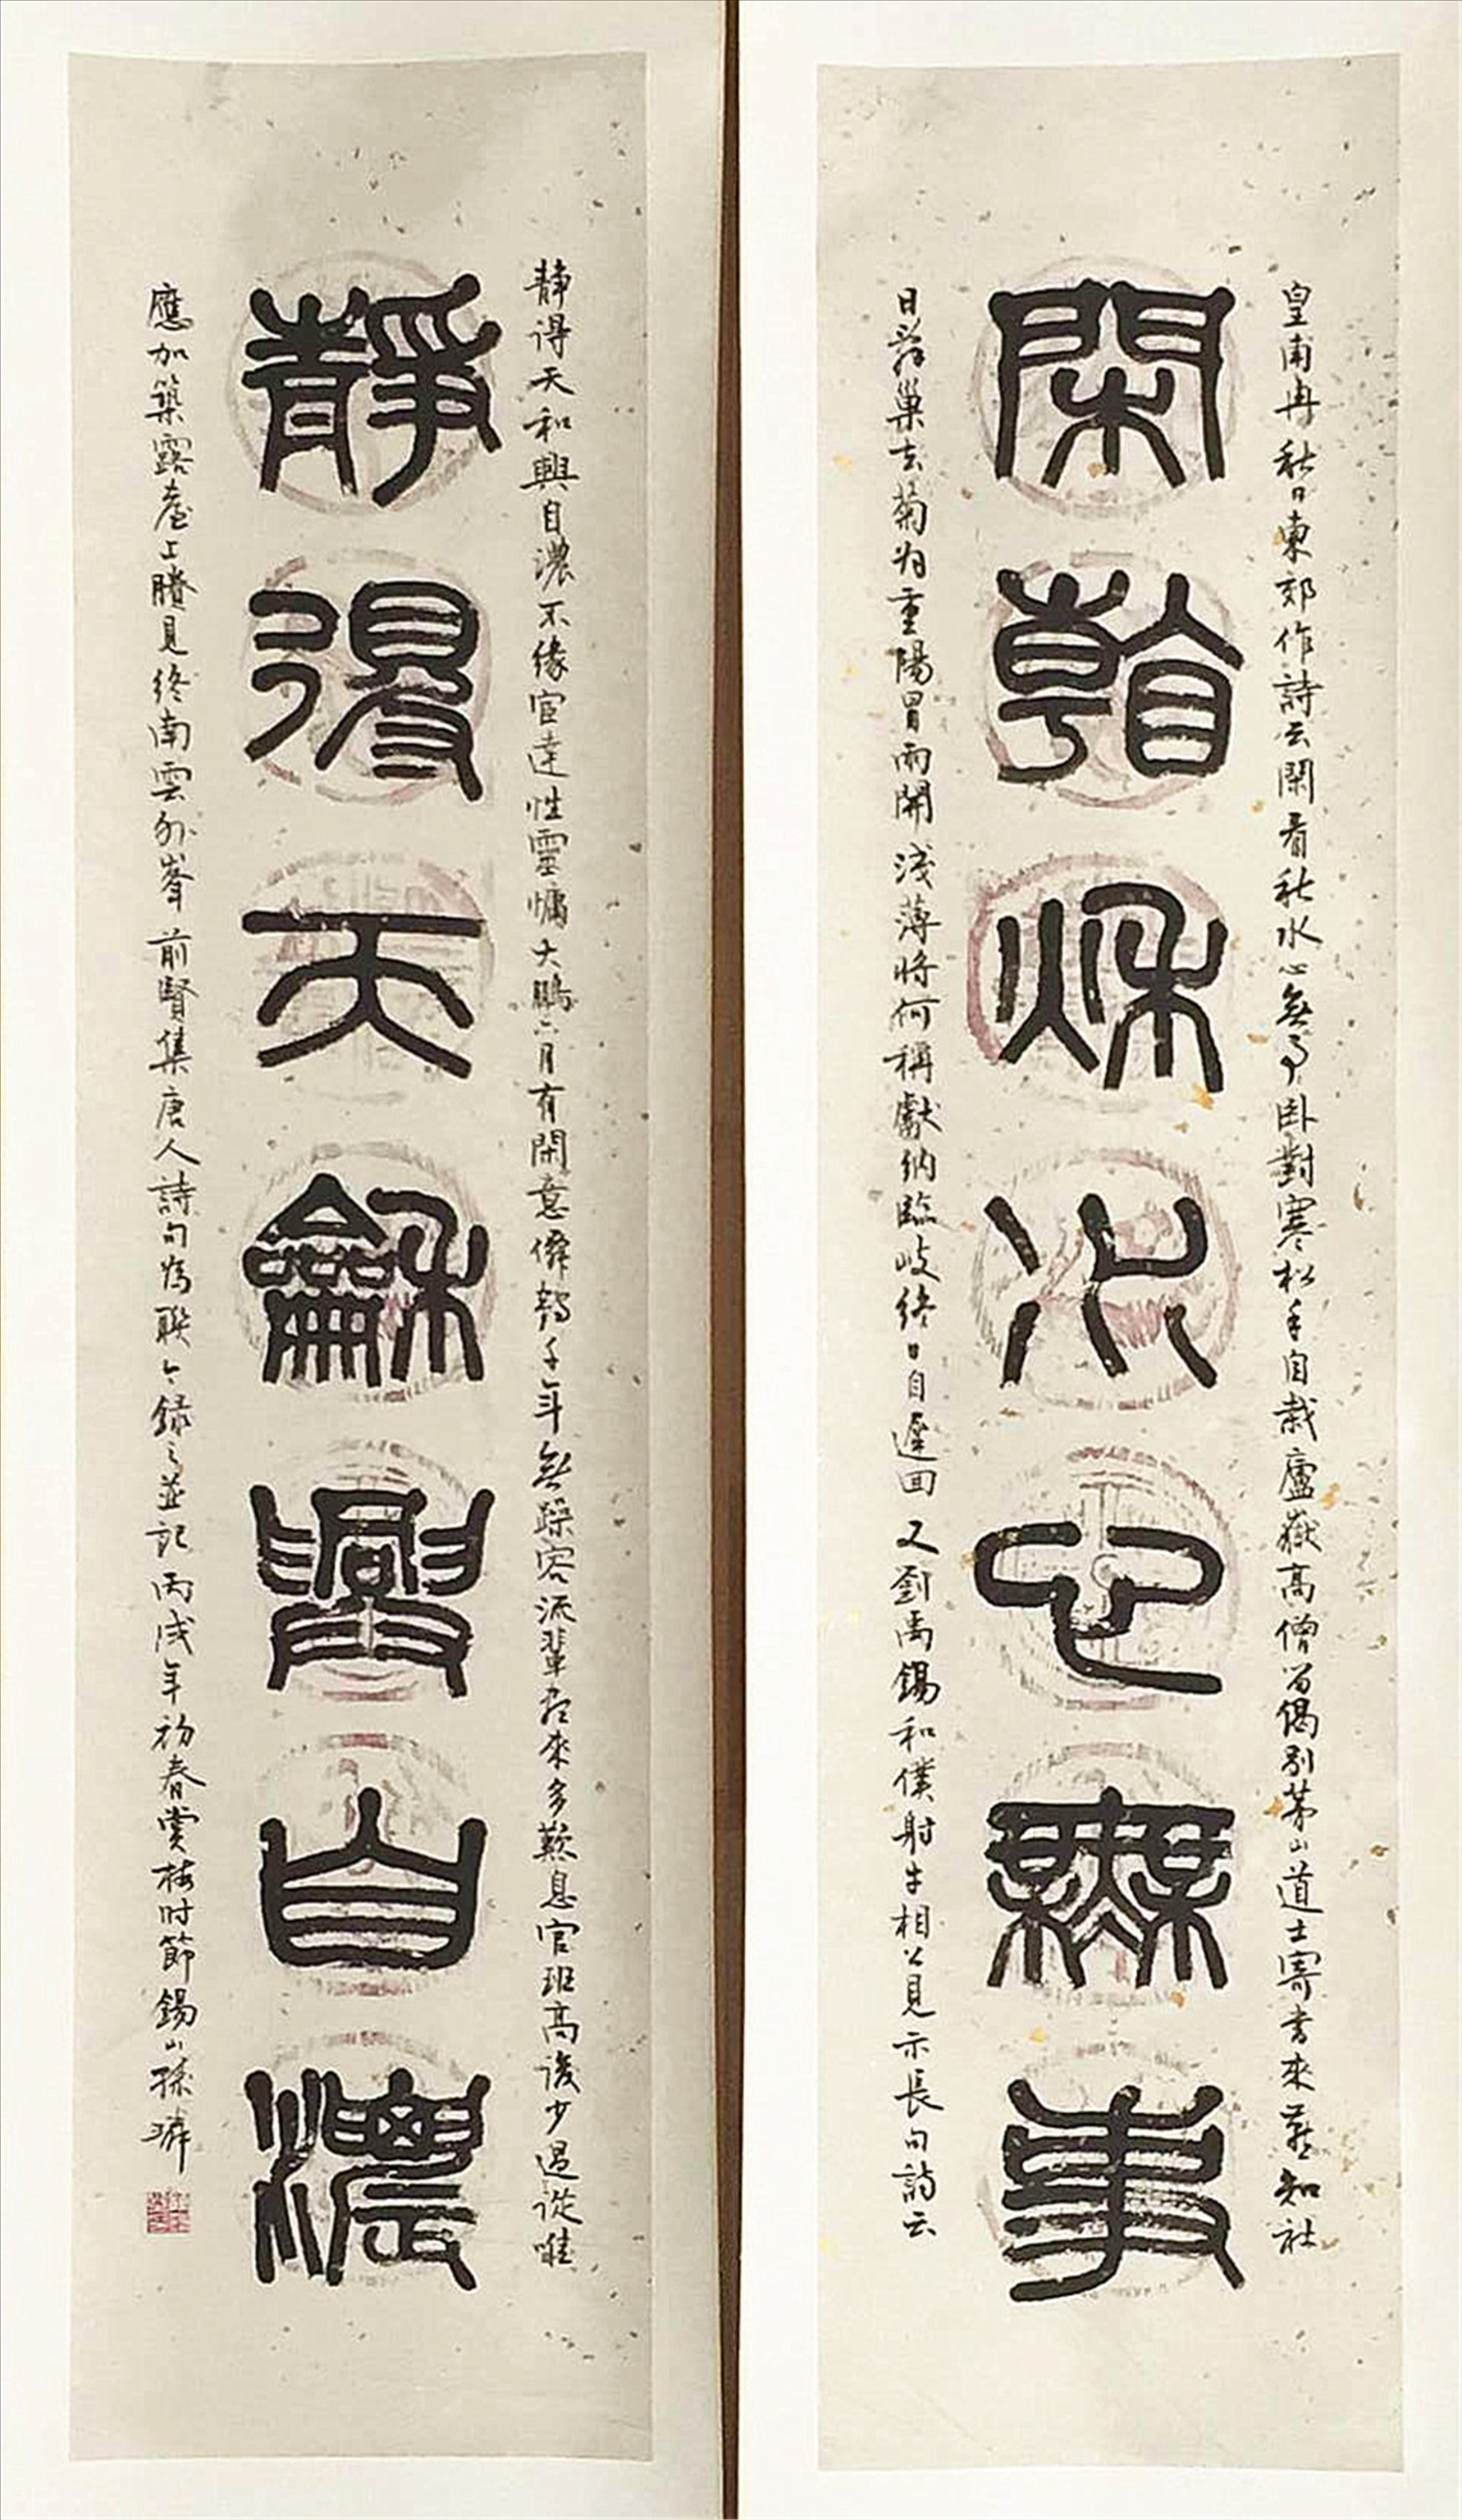 皇甫冉秋日東郊作詩云閑看秋水心無事臥對寒松手自栽廬嶽高僧留偈別茅山道士寄書來燕知社
閑看秋水心無事
日辞巢去菊为重陽冒雨開淺薄將何稱獻納臨岐終日自遲回又劉禹錫和僕射牛相公見示長句詩云
靜得天和興自濃不緣宦達性靈慵大鵬六月有閑意僊鶴千年無躁容流輩盡來多歎息官班高後少過從唯
靜得天龢興自濃
應加築露臺上賸見終南雲外峯前賢集唐人詩句為聯今錄之並記丙戌年初春賞梅时節錫山孫